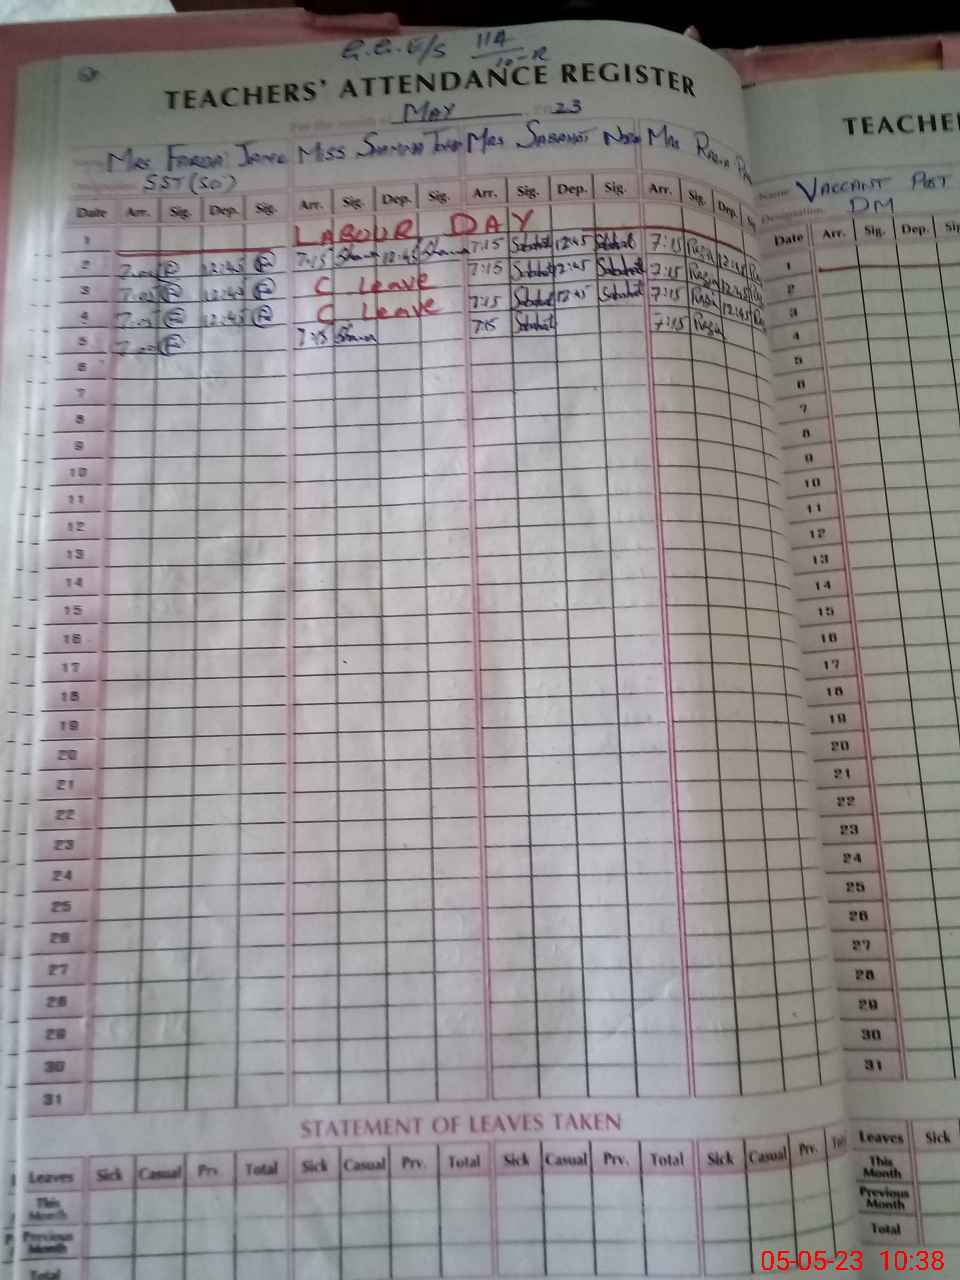 G.G.E/S 114/10-R
TEACHERS' ATTENDANCE REGISTER
MAY 23
Mrs Miss Mrs Sabahat Mrs
SST (SC)
Date Arr. Sig. Dep. Sig. Arr. Sig. Dep. Sig. Arr. Sig. Dep. Sig. Arr. Sig. Dep.
1 LABOUR DAY
2 12:45 7:15 12:45 7:15 Sabahat 12:45 Sabahat 7:15 Razia 12:45
3 7:00 12:45 C Leave 7:15 Sabahat 12:45 Sabahat 7:15 Razia 12:45
4 12:45 C Leave 7:15 Sabahat 12:45 Sabahat 7:15 Razia 12:45
5 7:00 7:15 7:15 Sabahat 7:15 Razia
6
7
8
9
10
11
12
13
14
15
16
17
18
19
20
21
22
23
24
25
26
27
28
29
30
31
STATEMENT OF LEAVES TAKEN
Leaves Sick Casual Prv. Total Sick Casual Prv. Total Sick Casual Prv. Total Sick Casual Prv.
This Month
Previous Month
Total
TEACHE
Name VACCANT POST
Designation DM
Date Arr. Sig. Dep.
1
2
3
4
5
6
7
8
9
10
11
12
13
14
15
16
17
18
19
20
21
22
23
24
25
26
27
28
29
30
31
Leaves Sick
This Month
Previous Month
Total
05-05-23 10:38